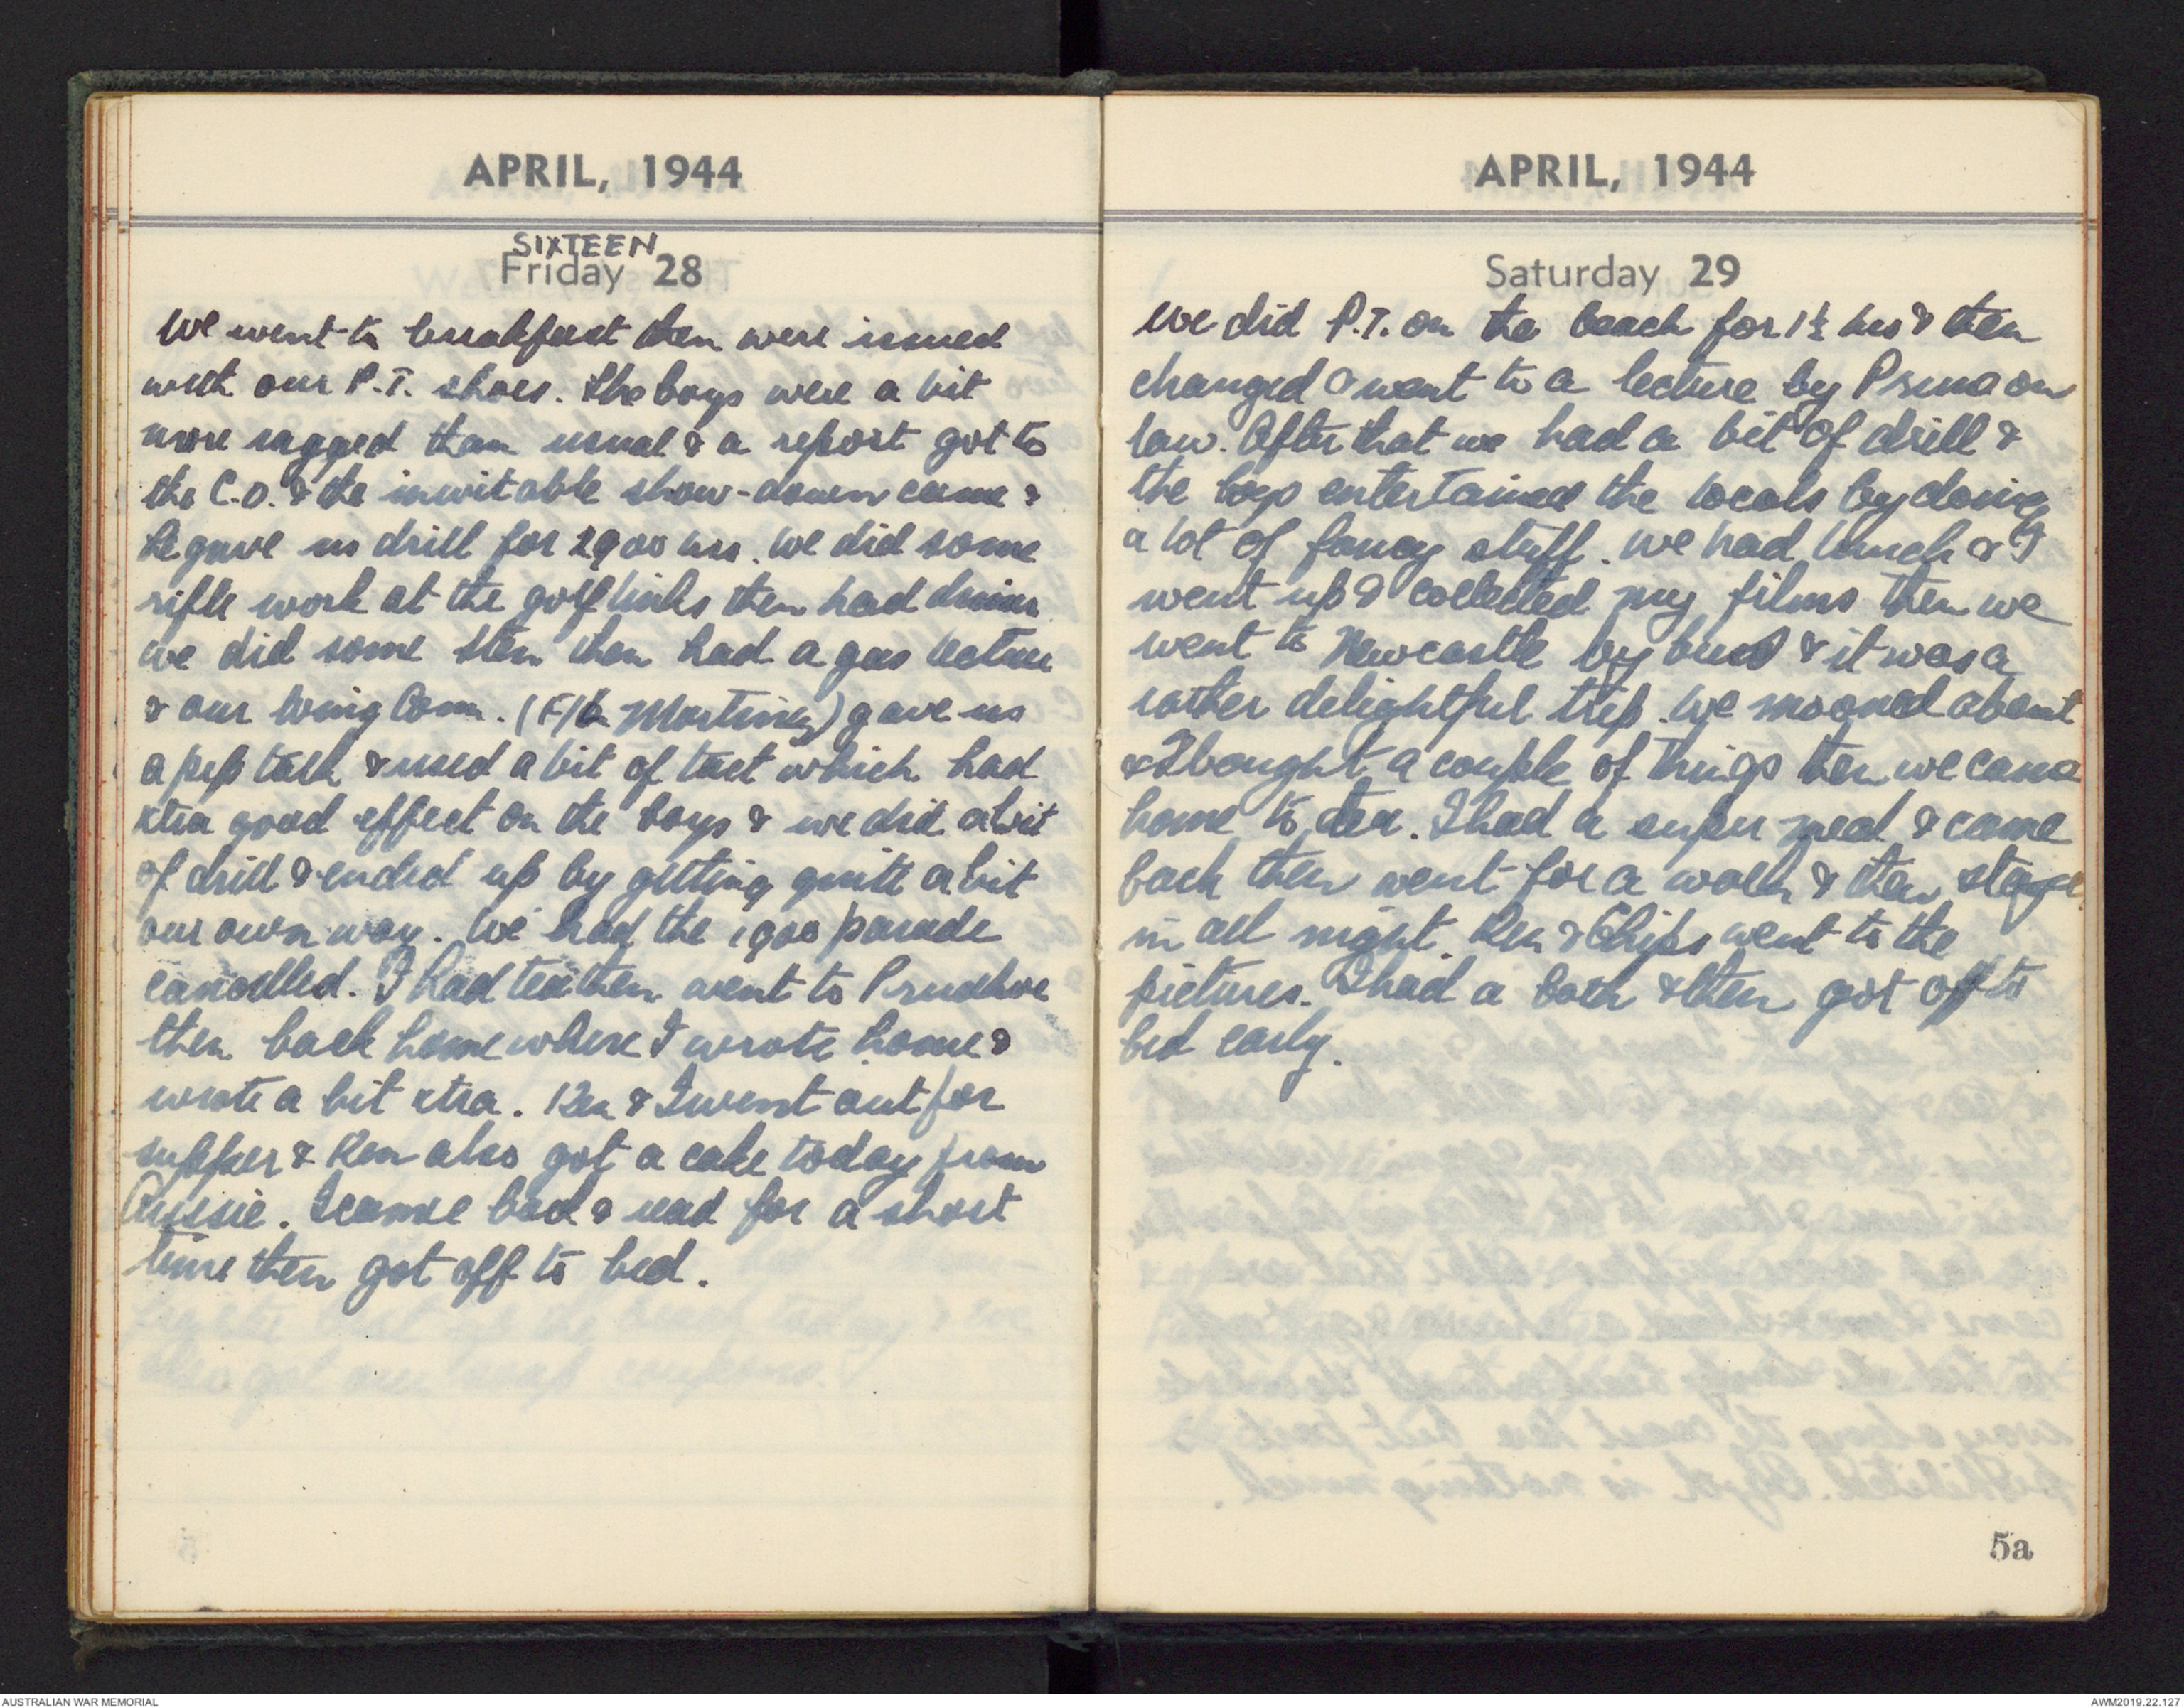 APRIL, 1944
SIXTEEN
Friday 28
We went to breakfast then were issued
with our P.T. shoes. The boys were a bit
more ragged than usual & a report got to
the C.O. & the inevitable show-down came &
he gave us drill for 1900 hrs. We did some
rifle work at the golf links then had dinner
we did some Sten then had a gas lecture
& our Wing Com. (F/Lt Martiney) gave us
a pep talk & used a bit of tact which had
xtra good effect on the boys & we did a bit
of drill & ended up by getting quite a bit
our own way. We had the 1900 parade
cancelled. I had tea then went to Prudhoe
then back home where I wrote home &
wrote a bit xtra. Ken & I went out for
supper & Ken also got a cake today from
Aussie. I came back & read for a short
time then got off to bed.
APRIL, 1944
Saturday 29
We did P.T. on the beach for 1½ hrs & then
changed & went to a lecture by on
law. After that we had a bit of drill &
the boys entertained the locals by doing
a lot of fancy stuff. We had lunch & I
went up & collected my films then we
went to Newcastle by bus & it was a
rather delightful trip. We mooned about
& I bought a couple of things then we came
home to tea. I had a super meal & came
back then went for a walk & then stayed
in all night. Ken & Chips went to the
pictures. I had a bath & then got off to
bed early.
5a
AUSTRALIAN WAR MEMORIAL
AWM2019.22.127